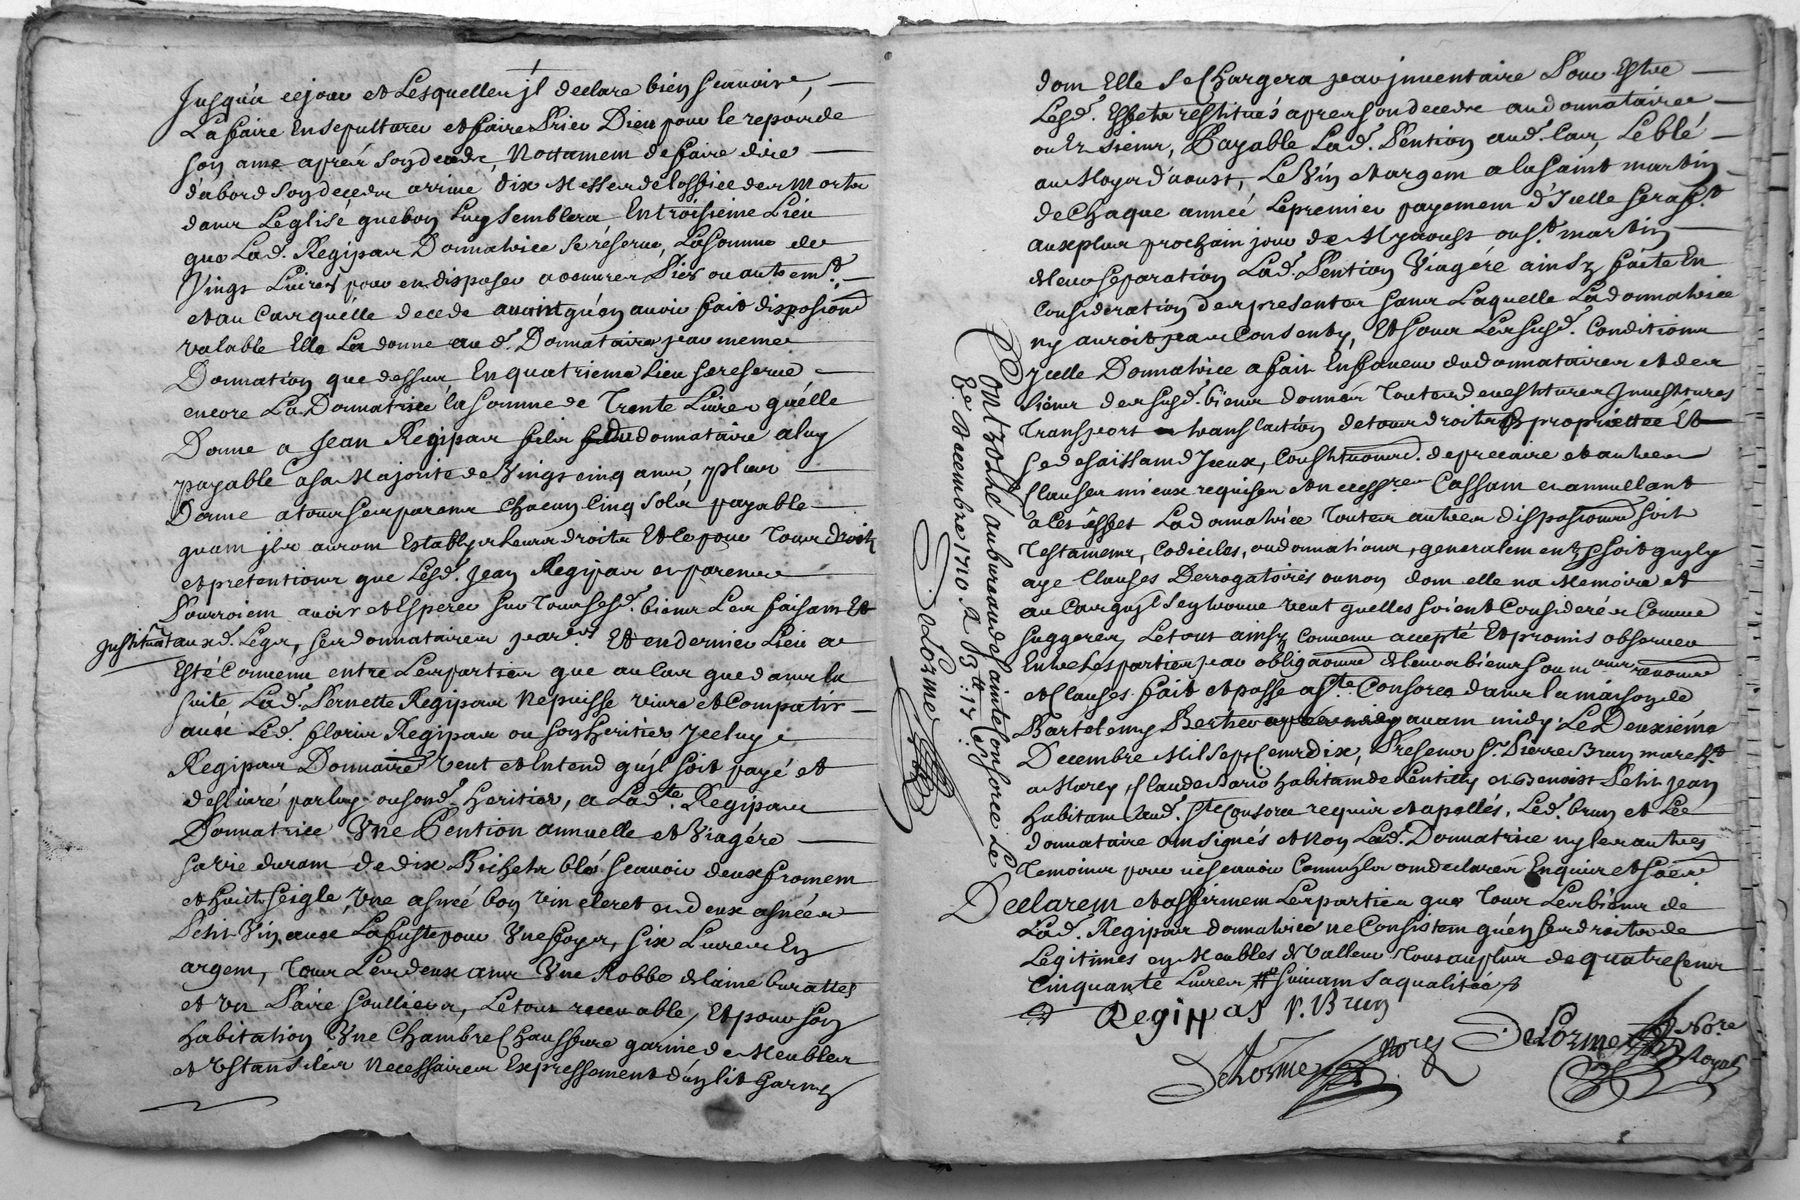 Jusqua cejour et Lesquelles jl declare bien scauoir,
La faire Ensepulturer et faire Prier Dieu pour le repos de
son ame apres son deceds, Nottament de faire dire
dabord son deceds arriué dix Messes de loffice des Morts
dans Leglise que bon Luy semblera En troisieme Lieu
que Lad. Regipas Donnatrice se réserue, La somme de
Vingt Liures pour en disposer a oeuures Pies ou autrem.t
et au Cas quelle decede auant quén auoir fait disposiõn
valable Elle La donne aud. Donnataire par meme
Donnation que dessus En quatrieme Lieu se reserue
encore La Donnatrice la somme de Trente Liures quélle
Donne a Jean Regipas fils dudonnataire a luy
payable a sa Majorité de Vingt cinq ans, plus
Donne a tous ses parens Chacun Cinq sols payable
quant jls auront Establys Leurs droits Et ce pour Tous droits
et pretentions que Lesd. Jean Regipas et parens
Pourroient auoir et Esperer sur Tous sesd. biens Les faisant Et
Jnstituãt auxd. Legs, ses donnataires par.ers Et en dernier Lieu a
Esté Conuenu entre Les parties que au Cas que dans la
suite Lad. Pernette Regipas Ne puisse viure et Compatir
auec Led. floris Regipas ou son Heritier Jceluy
Regipas Donnaire veut et Entend quýl soit payé et
desliuré par luy ou sond. Heritier, a Lad.te Regipas
Donnatrice Vne Pention annuelle et Viagére
sa vie durant de dix Bichets blé scauoir deux froment
et huit seigle, Vne asneé bon vin cleret et deux asneés
Petit Vin auec La fuste pour Vne foys, six Liures En
argent, Tous Les deux ans Vne Robbe de laine burattes
et vn Paire soulliers, Le tout receuable, Et pour son
habitation Vne Chambre Chauffure garnie de Meubles
et Vstansiles Necessaires Expressement d'un lit Garny
dont Elle se Chargera par jnuentaire Pour Estre
Lesd. Effets restitués apres son deceds au donnataire
ou Es siens, Payable Lad. Pention aud. Cas, Le blé
au Moys d'aoust, Le Vin et argent a la saint martin
de Chaque anneé Le premier payement d'Jcelle sera f.t
aux plus prochain jour de My aoust ou S.t martin
de leur séparation Lad. Pention Viagére ainsy faite En
Consideration des presentes sans Laquelle La donnatrice
ny auroit par Consenty, Et sous Les susd. Conditions
Jcelle Donnatrice a fait En faueur du donnataires et des
siens des susd. biens donnés Toutes deuestitures Jnuestitures
Transport translation de tous droits de propriettée Et
se desaisissant d'Jceux, Constituõnt. de precaire et autres
Clauses mieux requises et necess.res Cassant et annullant
a Cés effet La donnatrice Toutes autres disposiõns soit
Testamens, Codiciles, ou donnations, generalement soit quyly
aye Clauses Derrogatoires ou non dont elle na Memoire et
au Cas quýl sen trouue veut quelles soient Considerées Comme
suggerez Le tout ainsy Conuenu accepté Et promis obseruer
Entre Les parties par obligaõns de leurs biens soumõns renõns
et Clauses fait et passé a S.te Consorce dans la maison de
Bartelemy Berthet auant midy Le Deuxiéme
Decembre Mil sept Cens dix, Presens S.r Pierre Brun
a Morey, Claude habitant de Lentilly et Benoist Petit Jean
habitant aud. S.te Consorce requis et apellés, Led. brun et Les
donnataire ont signés et Non Lad. Donnatrice ny les autres
Temoins pour ne scauoir Comme jls ont declarés Enquis et
Declarent et affirment Les parties que Tous Les biens de
Lad. Regipas donnatrice ne Consistent qu'en ses droits de
Légitimes en Meubles de Valleur Tout au plus de quatre Cens
Cinquante Liures suiuant sa qualitée
Regippas P. Brun
Delorme Morey Delorme Nore Royal
Controllé au bureau de Sainte Consorce Le
8e decembre 1710 R
Delorme